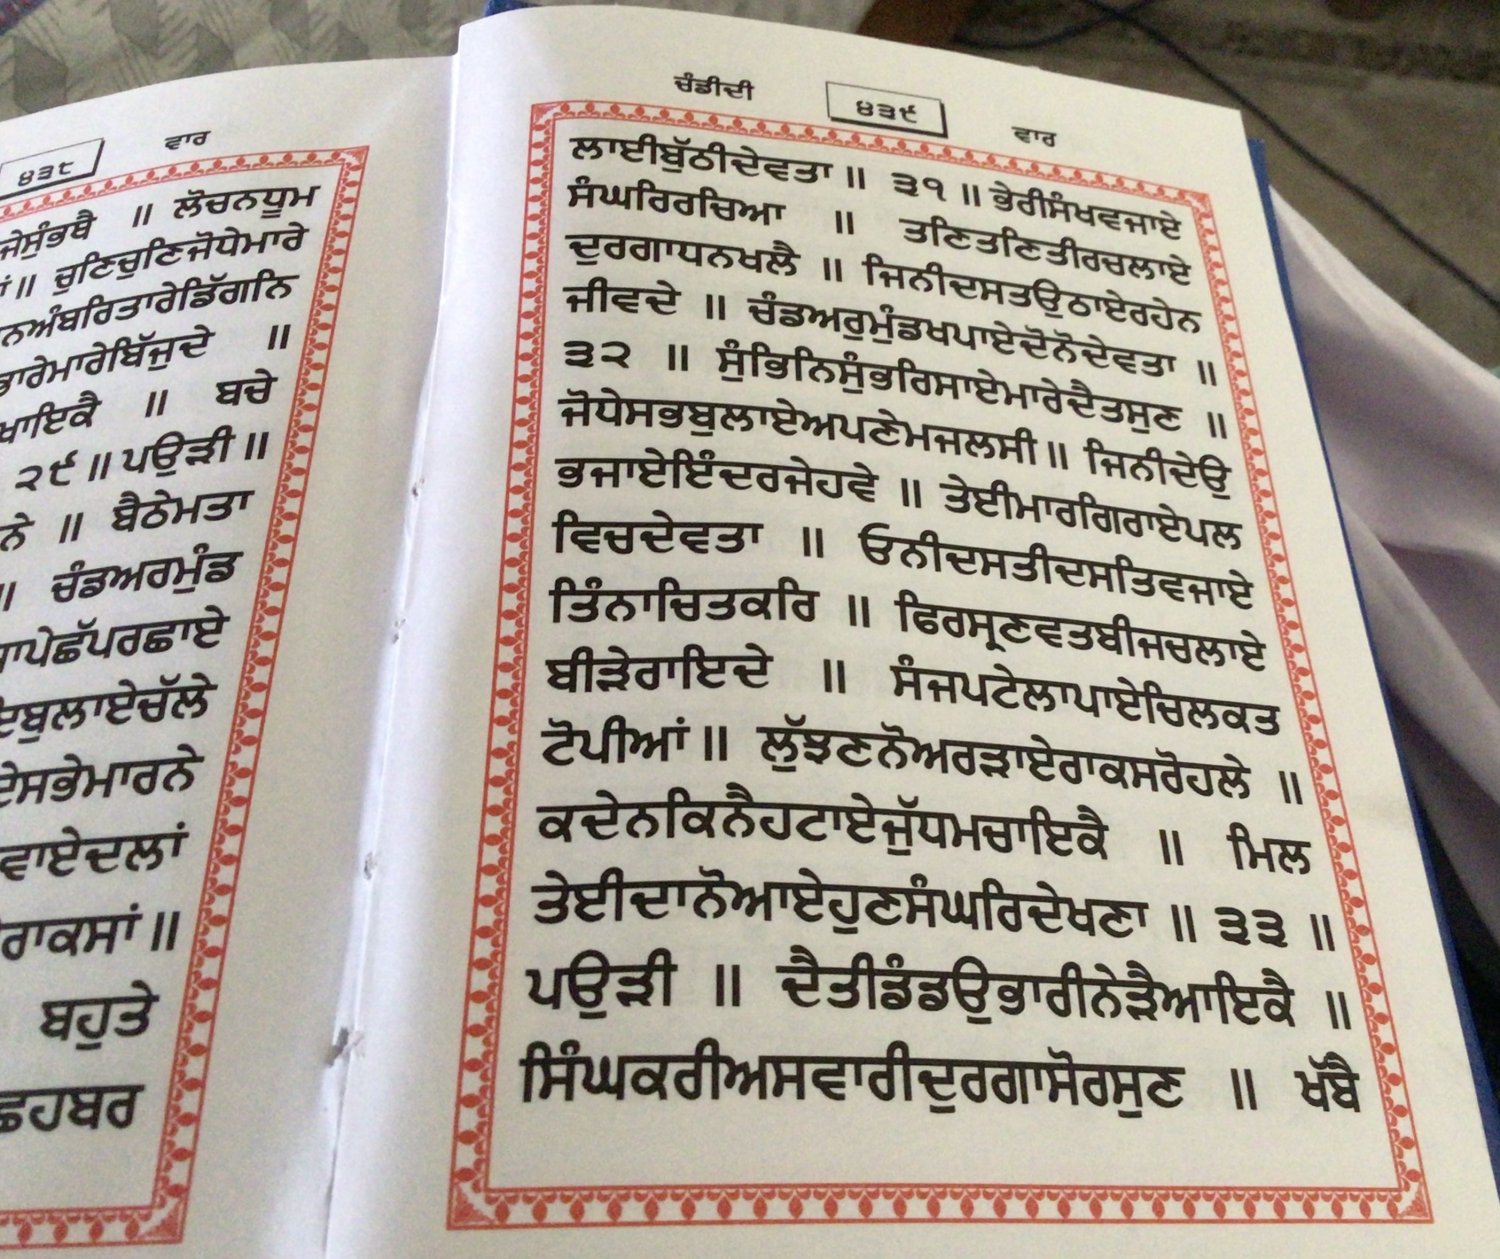 ੪੩੮ ਵਾਰ
ਜੇਸੁੰਭਬੈ ॥ ਲੋਚਨਧੂਮ
॥ ਚੁਣਿਚੁਣਿਜੋਧੇਮਾਰੇ
ਨਅੰਬਰਿਤਾਰੇਡਿੱਗਨਿ
ਭਾਰੇਮਾਰੇਬਿੱਜੁਦੇ ॥
ਖਾਇਕੈ ॥ ਬਚੇ
੨੯ ॥ ਪਉੜੀ ॥
ਨੇ ॥ ਬੈਠੇਮਤਾ
॥ ਚੰਡਅਰਮੁੰਡ
ਾਪੇਛੱਪਰਛਾਏ
ਬੁਲਾਏਚੱਲੇ
ਏਸਭੇਮਾਰਨੇ
ਵਾਏਦਲਾਂ
ਰਾਕਸਾਂ ॥
ਬਹੁਤੇ
ਛਹਬਰ
ਚੰਡੀਦੀ ੪੩੯ ਵਾਰ
ਲਾਈਬੁੱਠੀਦੇਵਤਾ ॥ ੩੧ ॥ ਭੇਰੀਸੰਖਵਜਾਏ
ਸੰਘਰਿਰਚਿਆ ॥ ਤਣਿਤਣਿਤੀਰਚਲਾਏ
ਦੁਰਗਾਧਨਖਲੈ ॥ ਜਿਨੀਦਸਤਉਠਾਏਰਹੇਨ
ਜੀਵਦੇ ॥ ਚੰਡਅਰੁਮੁੰਡਖਪਾਏਦੋਨੋਦੇਵਤਾ ॥
੩੨ ॥ ਸੁੰਭਿਨਿਸੁੰਭਰਿਸਾਏਮਾਰੇਦੈਤਸੁਣ ॥
ਜੋਧੇਸਭਬੁਲਾਏਅਪਣੇਮਜਲਸੀ ॥ ਜਿਨੀਦੇਉ
ਭਜਾਏਇੰਦਰਜੇਹਵੇ ॥ ਤੇਈਮਾਰਗਿਰਾਏਪਲ
ਵਿਚਦੇਵਤਾ ॥ ਓਨੀਦਸਤੀਦਸਤਿਵਜਾਏ
ਤਿੰਨਾਚਿਤਕਰਿ ॥ ਫਿਰਸ੍ਰਣਵਤਬੀਜਚਲਾਏ
ਬੀੜੇਰਾਇਦੇ ॥ ਸੰਜਪਟੇਲਾਪਾਏਚਿਲਕਤ
ਟੋਪੀਆਂ ॥ ਲੁੱਝਣਨੋਅਰੜਾਏਰਾਕਸਰੋਹਲੇ ॥
ਕਦੇਨਕਿਨੈਹਟਾਏਜੁੱਧਮਚਾਇਕੈ ॥ ਮਿਲ
ਤੇਈਦਾਨੋਆਏਹੁਣਸੰਘਰਿਦੇਖਣਾ ॥ ੩੩ ॥
ਪਉੜੀ ॥ ਦੈਤੀਡੰਡਉਭਾਰੀਨੇੜੈਆਇਕੈ ॥
ਸਿੰਘਕਰੀਅਸਵਾਰੀਦੁਰਗਾਸੋਰਸੁਣ ॥ ਖੱਬੈ